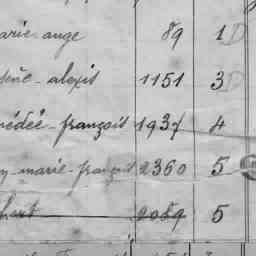 arie ange 89 1D
alexis 1151 3D
édée françois 1937 4
y-marie-françois 2360 5
2059 5